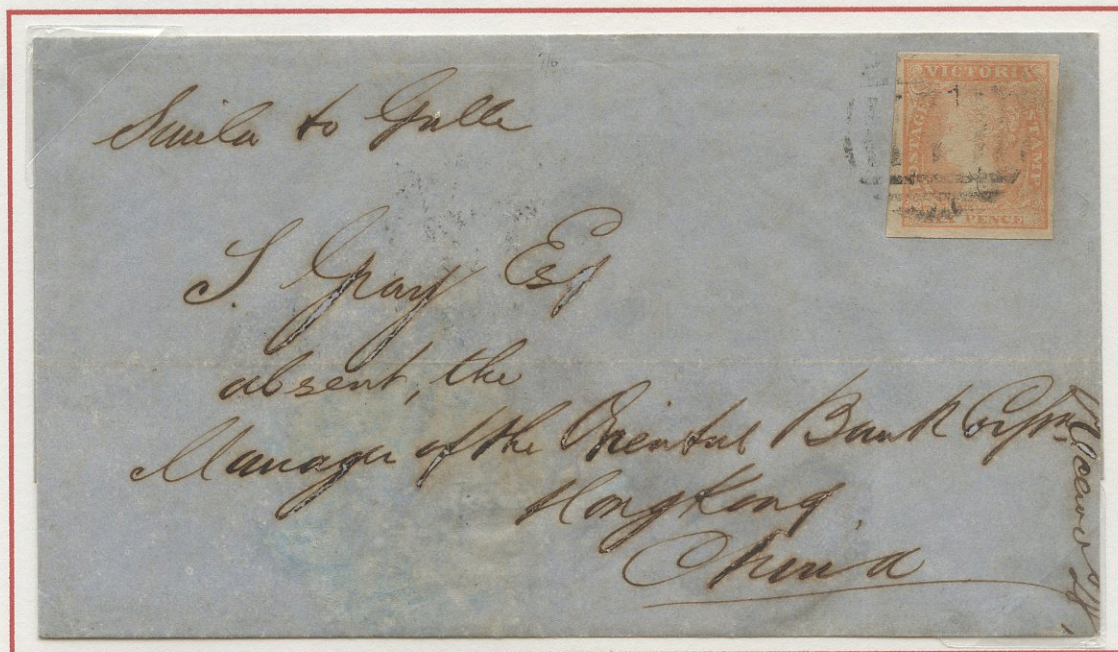 Simla to Galle
VICTORIA
POSTAGE
STAMP
PENCE
S. Gray Esq
absent, the
Manager of the Oriental Bank Corpn.
HongKong,
China